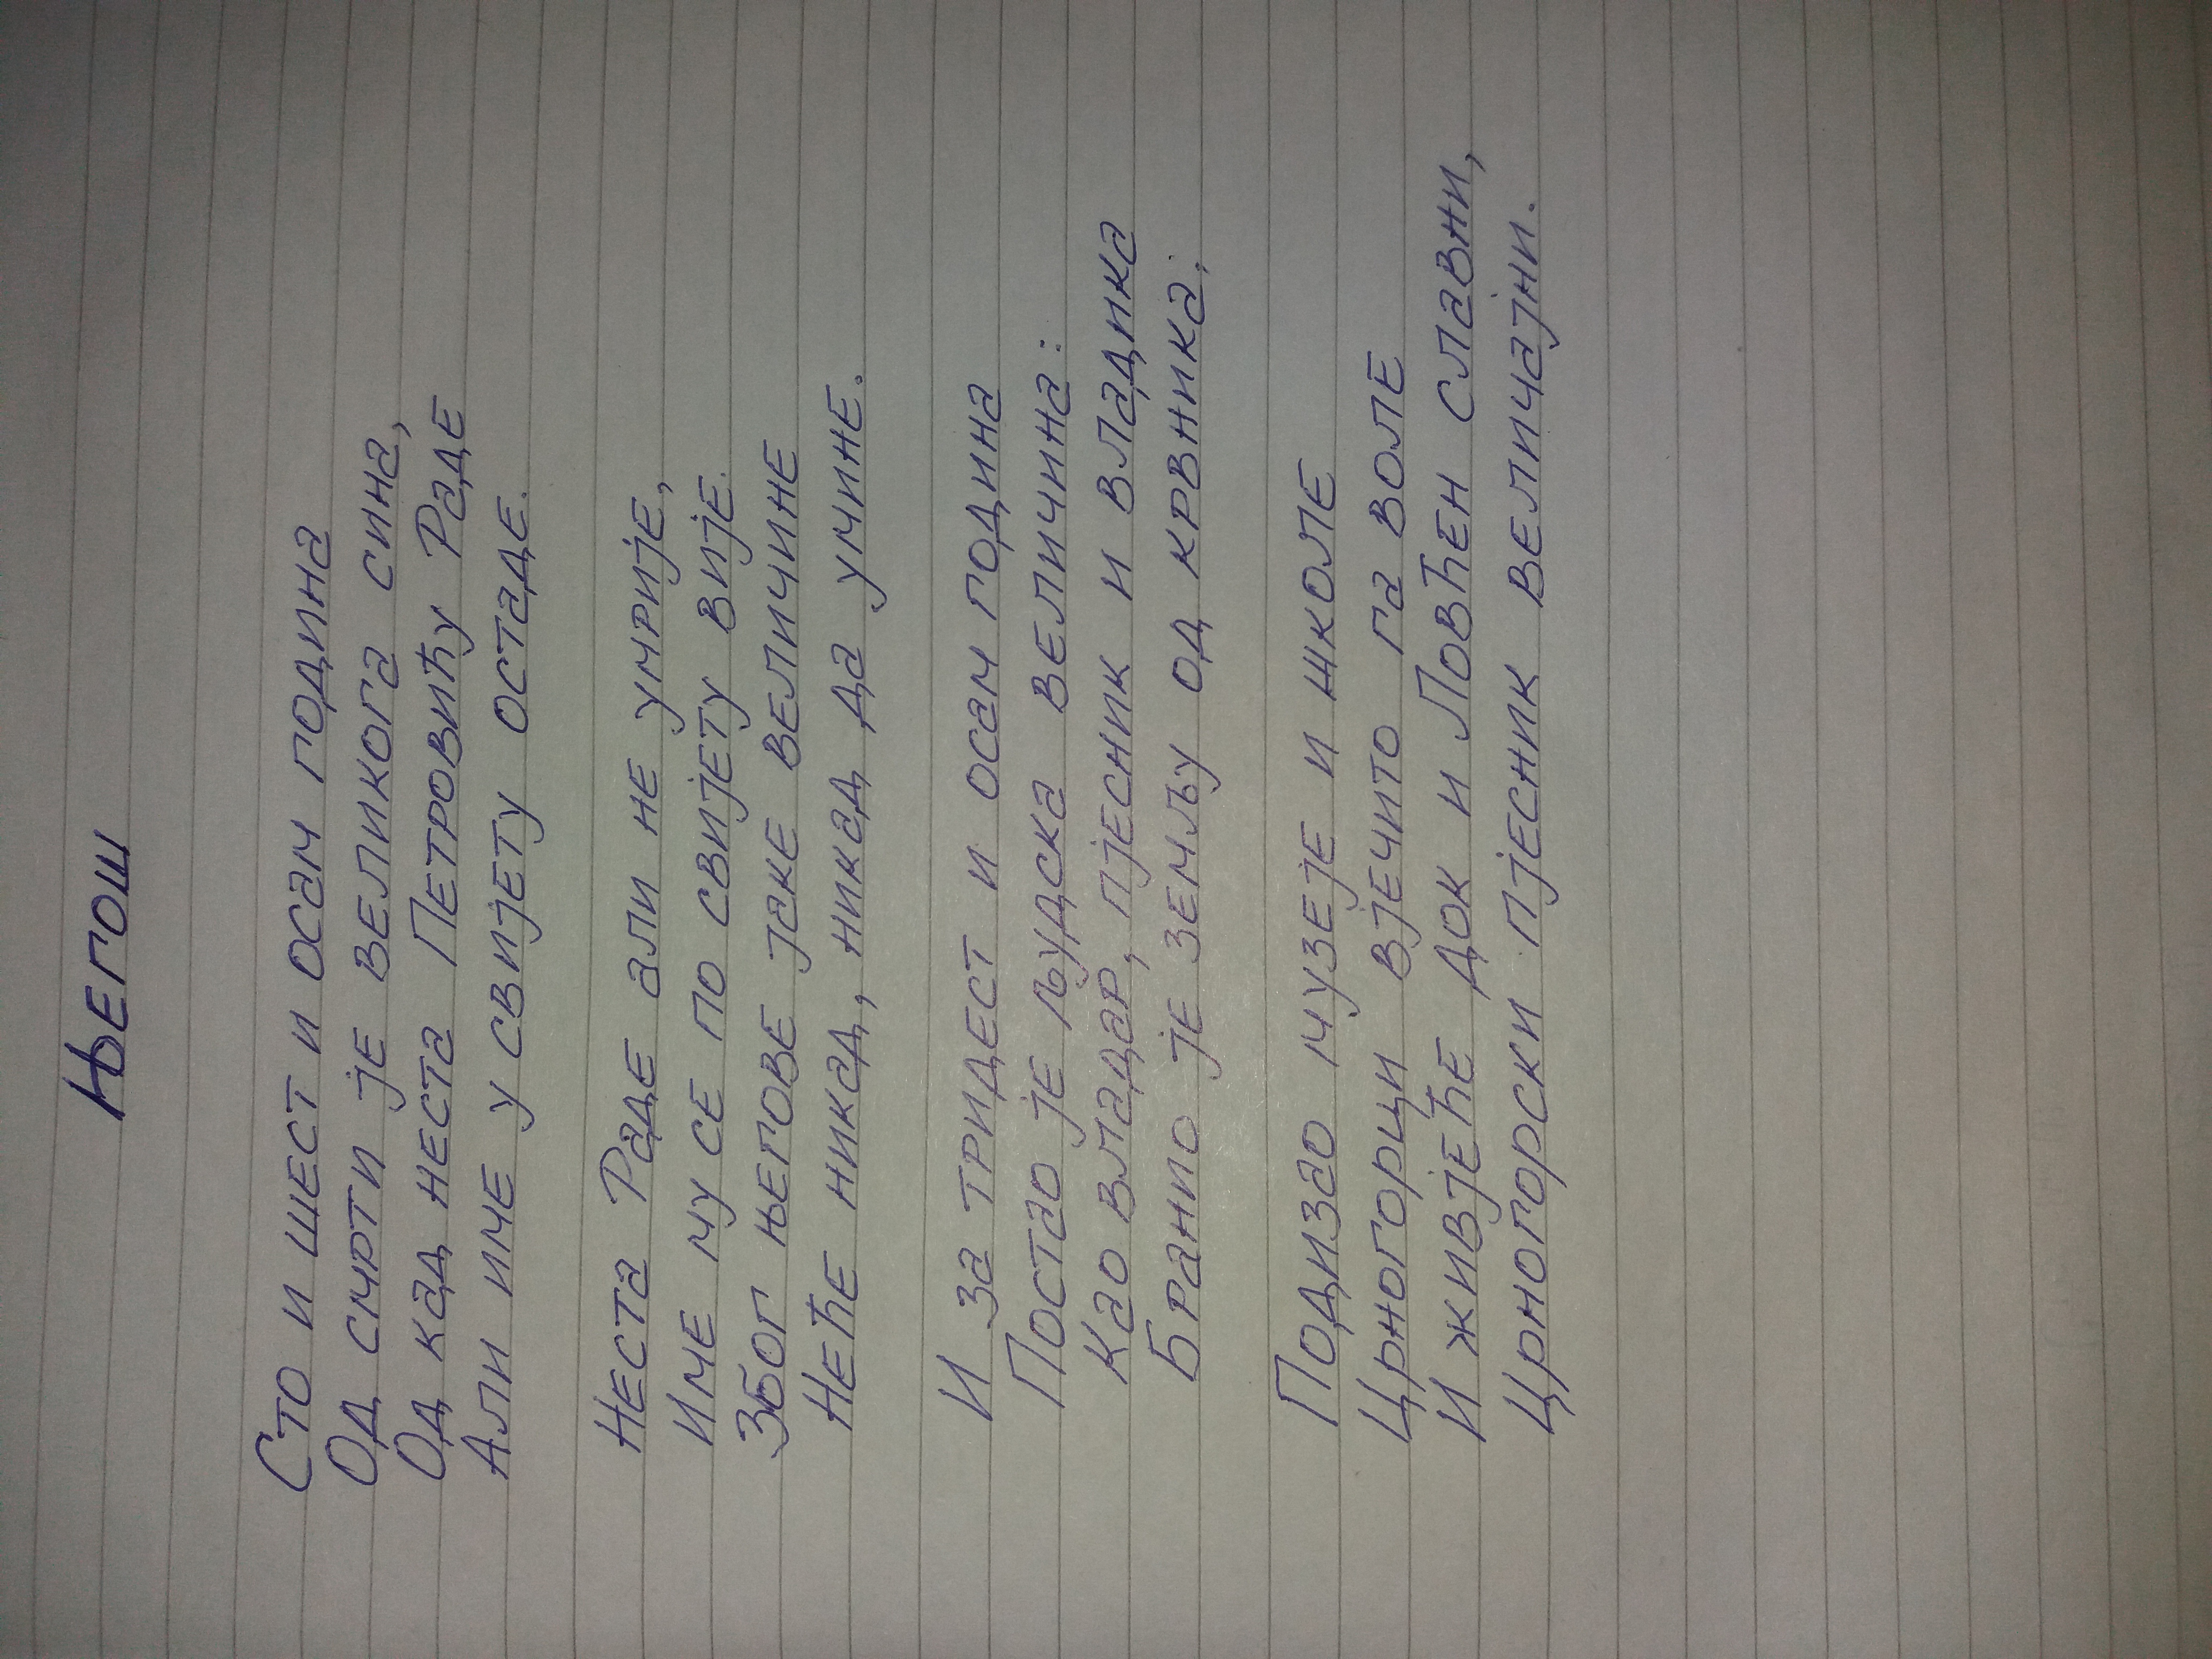 Његош
Сто и шест и осам година
Од смрти је великога сина,
Од кад неста Петровићу Раде
Али име у свијету остаде.
Неста Раде али не умрије,
Име му се по свијету вије.
Због његове јаке величине
Неће никад, никад да умине.
И за тридест и осам година
Постао је људска величина:
Као владар, пјесник и владика
Бранио је земљу од крвника;
Подизао музеје и школе
Црногорци вјечито га воле
И живјеће док и Ловћен славни,
Црногорски пјесник величајни.